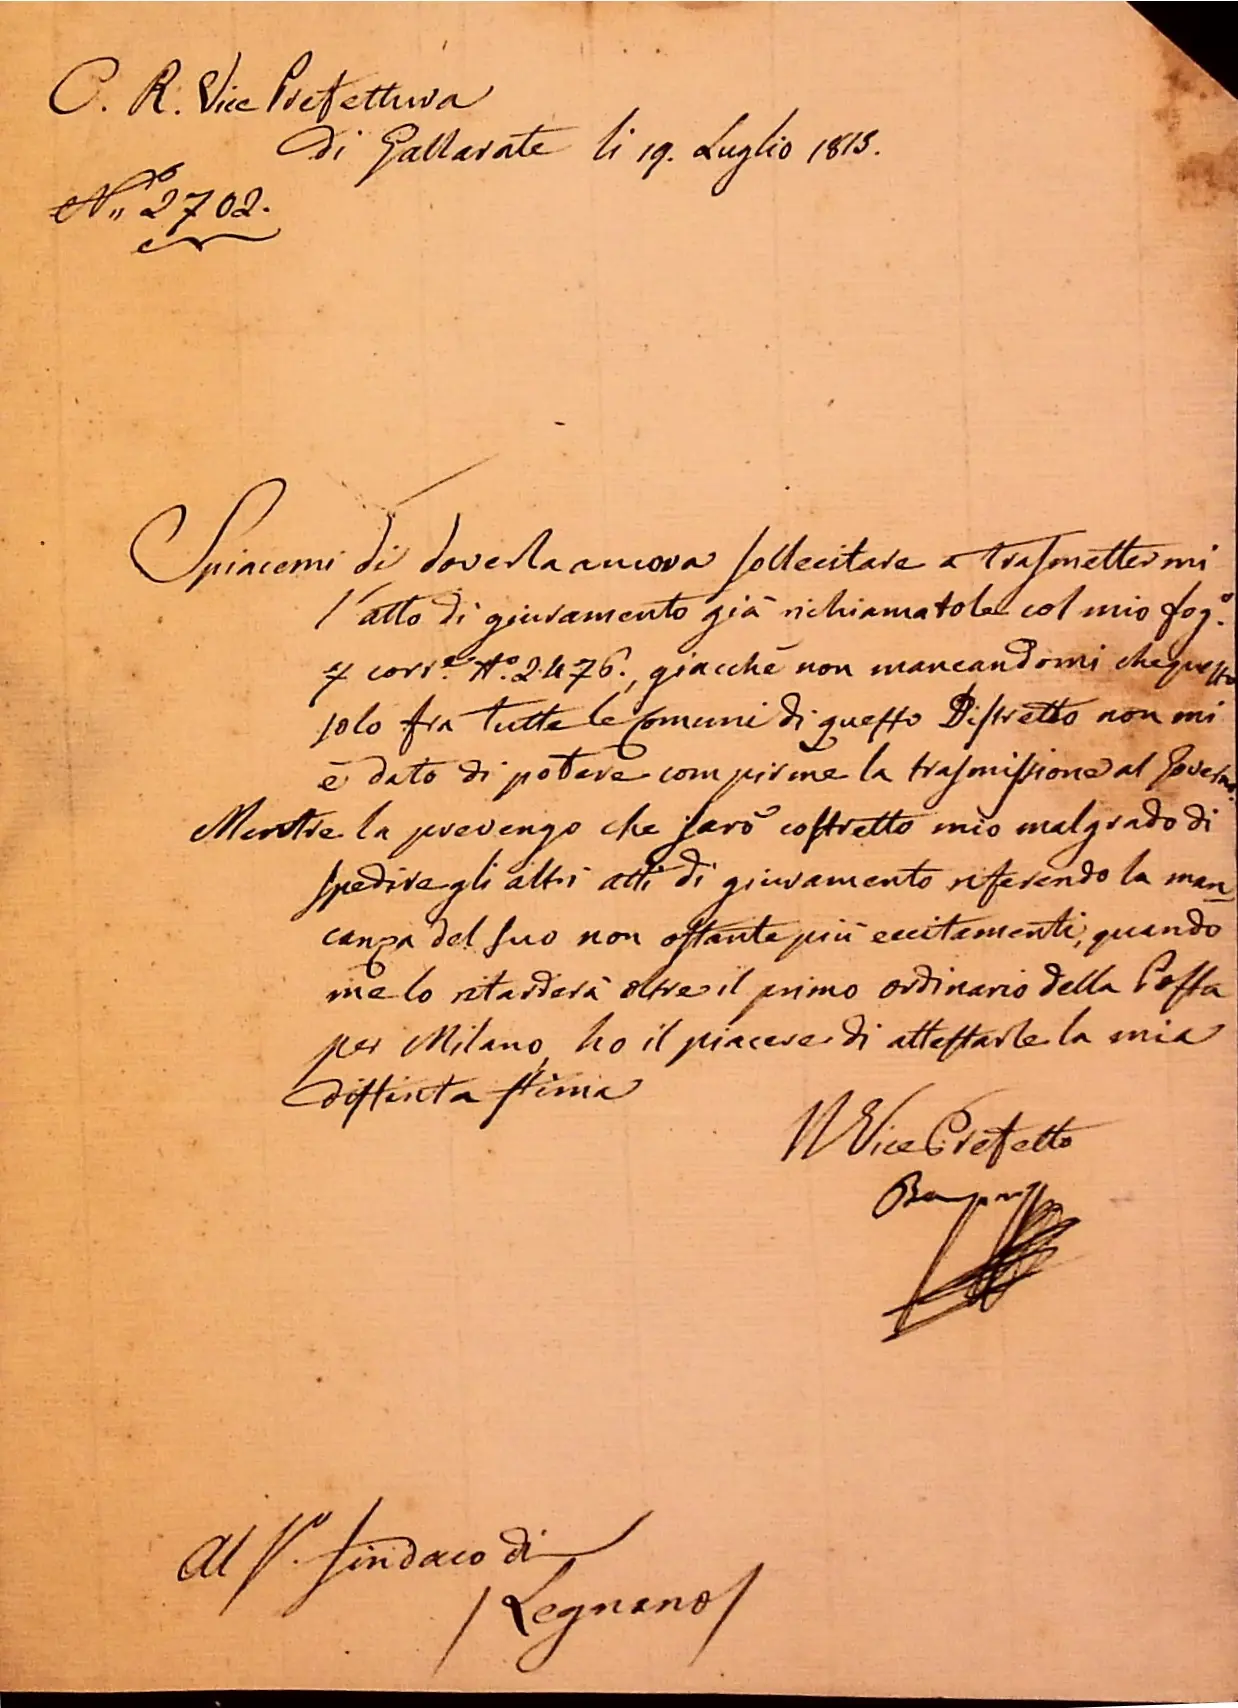 C. R. Vice Prefettura
di Gallarate li 19. Luglio 1815.
N.o 2702.
Spiacemi di doverla ancora sollecitare a trasmettermi
l'atto di giuramento già richiamatole col mio fog.o
7 corr.e N.o 2476., giacchè non mancandomi che questo
solo fra tutte le Comuni di questo Distretto non mi
è dato di potere compirne la trasmissione al Governo.
Mentre la prevengo che sarò costretto mio malgrado di
spedire gli altri atti di giuramento riferendo la man
canza del suo non ostante più eccitamenti, quando
me lo ritarderà oltre il primo ordinario della Posta
per Milano, ho il piacere di attestarle la mia
distinta stima
Il Vice Prefetto
Al S.r Sindaco di
Legnano